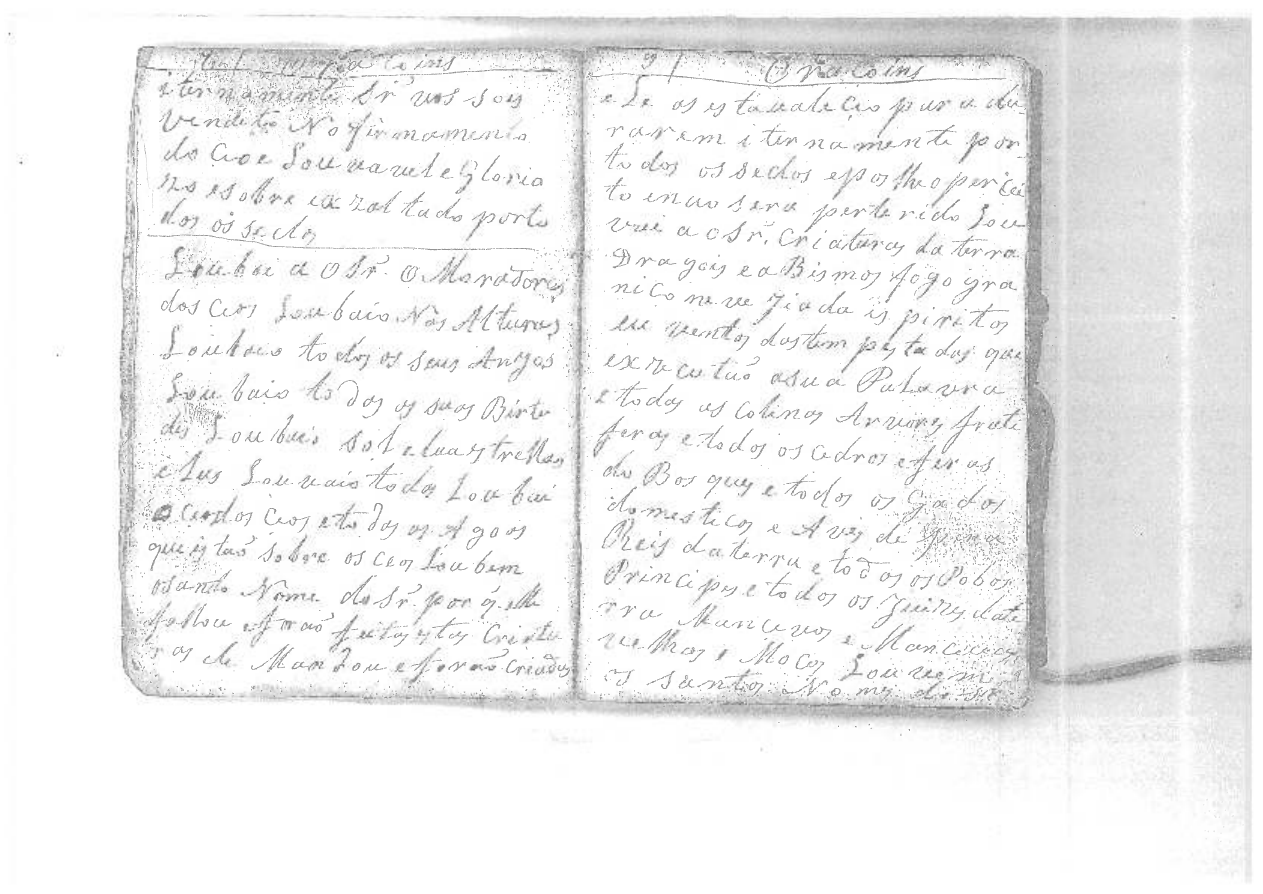 Ora coins
iternamente Sr̃ vos sois
vendito No firmamento
do Ceo e Louvavel e Gloria
no e sobre exzaltado porto
dos os seclos
Loubai a O Sr̃. O Moradores
dos Ceos Loubaio Nas Alturas
Loubaio todos os seus Anjos
Loubaio to dos as suas Birtu
des Loubaio sol e lua strellas
e Lus Louvaio todos Loubai
o ceodos Ceos e to das as Agoas
que istaõ sobre os ceos Loubem
osanto Nome do Sr̃. por q. elle
fallou e foraõ feitas estas Criatu
ras de Mandou e foraõ Criadas
9 Ora coins
e Le as estavaleçio para du
rarem iternamente por
to dos os seclos epos lheo percei
to enaõ sera perterido Lou
vai a O Sr̃. Criaturas da terra
Dragois e a Bismos fogo gra
nico neve Jiada is piritos
eu ventos dastem pestades que
exzecutaõ asua Palavra
e todas as Colinas Arvores fruti
feras e todos os cedros e feras
do Bosques e todos os Gados
domesticos e Aves de pena
Reis da terra e todos os Pobos
Principes e todos os Juizes date
rra Mancevos e Mancevas
velhos e Moços Louvem
os santos Nomes do Sr̃